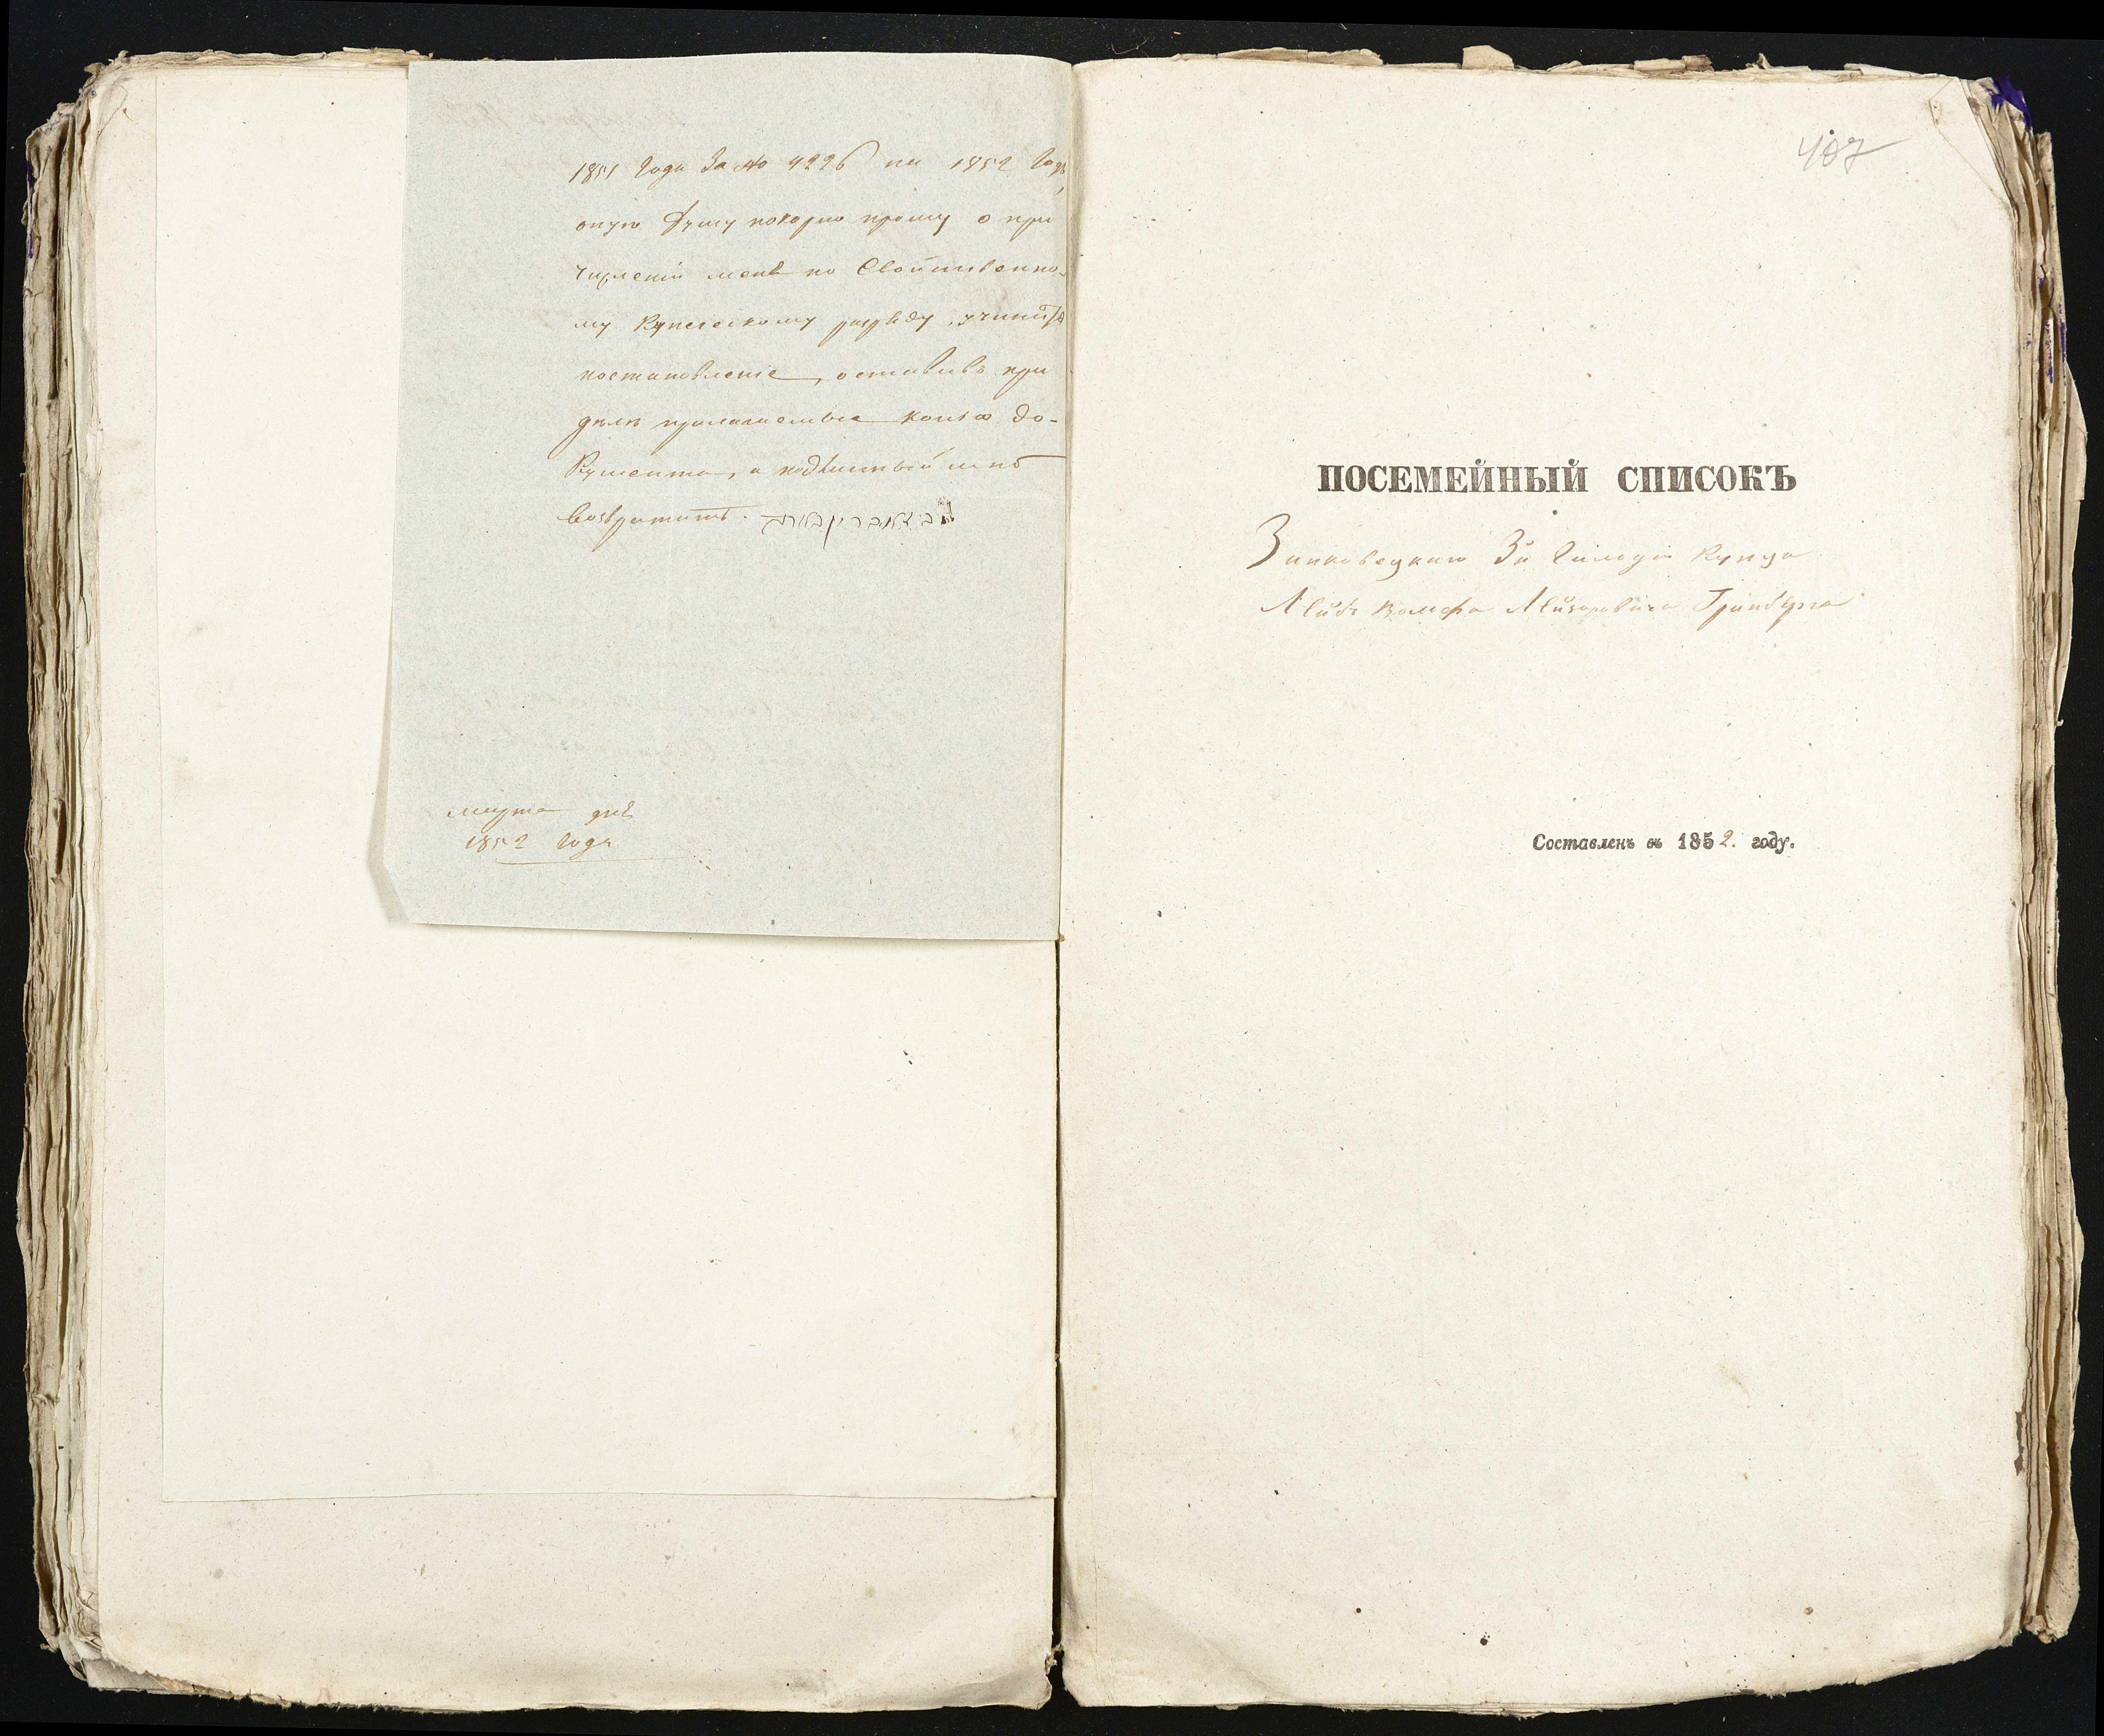 1851 года за № 4226 на 1852 годъ,
оную Думу покорно прошу о при
численіи меня по Свойственно-
му Купеческому разряду, учинить
постановленіе, оставивъ при
делѣ прилагаемые копіи до-
кумента, а подлинный мнѣ
возвратить.
марта дня
1852 года
407
ПОСЕМЕЙНЫЙ СПИСОКЪ
Зиньковецкаго 3й Гильдіи Купца
Лейбъ Вольфа Лейзоровича Гринберга
Составленъ въ 1852. году.